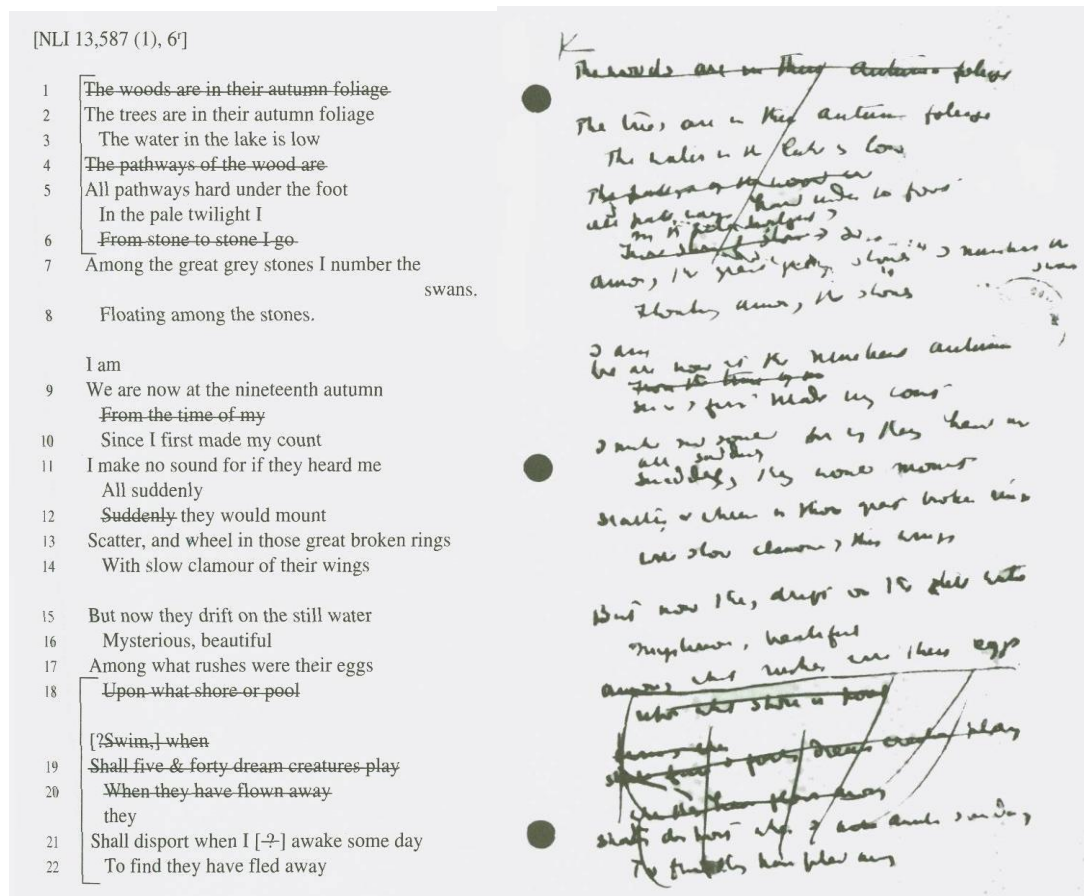 [NLI 13,587 (1), 6ʳ]
1 The woods are in their autumn foliage
2 The trees are in their autumn foliage
3 The water in the lake is low
4 The pathways of the wood are
5 All pathways hard under the foot
In the pale twilight I
6 From stone to stone I go
7 Among the great grey stones I number the
swans.
8 Floating among the stones.
I am
9 We are now at the nineteenth autumn
From the time of my
10 Since I first made my count
11 I make no sound for if they heard me
All suddenly
12 Suddenly they would mount
13 Scatter, and wheel in those great broken rings
14 With slow clamour of their wings
15 But now they drift on the still water
16 Mysterious, beautiful
17 Among what rushes were their eggs
18 Upon what shore or pool
[?Swim,] when
19 Shall five & forty dream creatures play
20 When they have flown away
they
21 Shall disport when I [-?-] awake some day
22 To find they have fled away
The woods are in their autumn foliage
The trees are in their autumn foliage
The water in the lake is low
The pathways of the wood are
All pathways hard under the foot
among the great grey stones I number the
swans
Floating among the stones
I am
We are now at the nineteenth autumn
From the time of my
Since I first made my count
I make no sound for if they heard me
all suddenly
Suddenly they would mount
Scatter & wheel in those great broken rings
With slow clamour of their wings
But now they drift on the still water
Mysterious, beautiful
among what rushes were their eggs
upon what shore or pool
Shall five & forty dream creatures play
when they have flown away
Shall disport when I awake some day
To find they have fled away